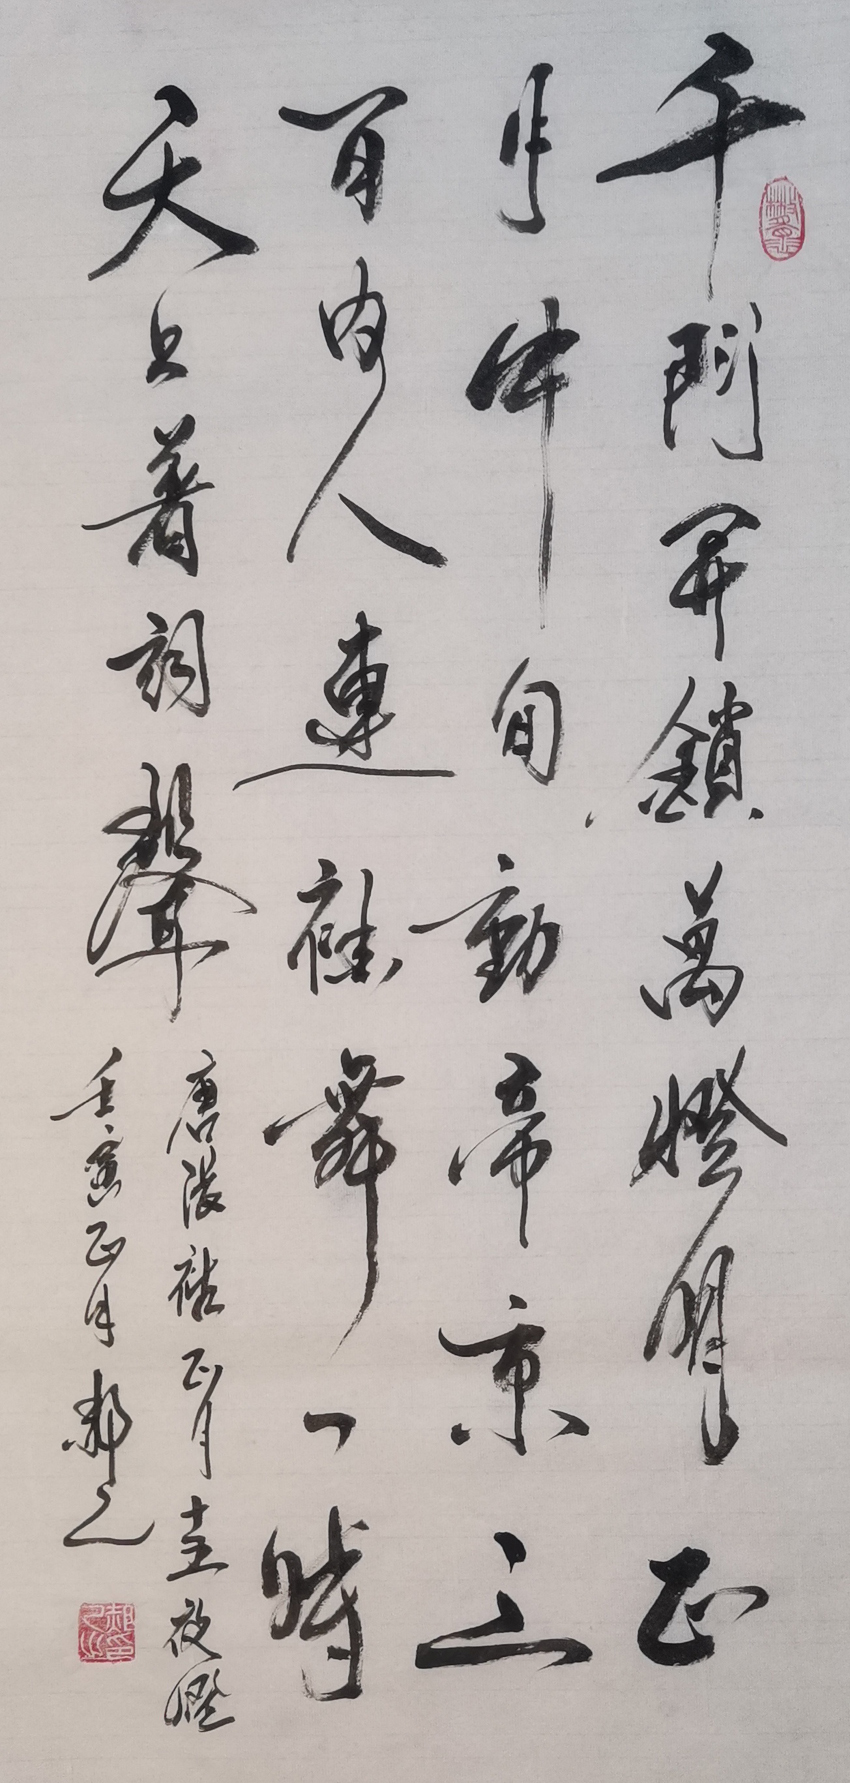 千門開鎖萬燈明正
月中旬動帝京三
百内人連袖舞一時
天上著詞聲
唐張祜正月十五夜燈
壬寅正月郝之